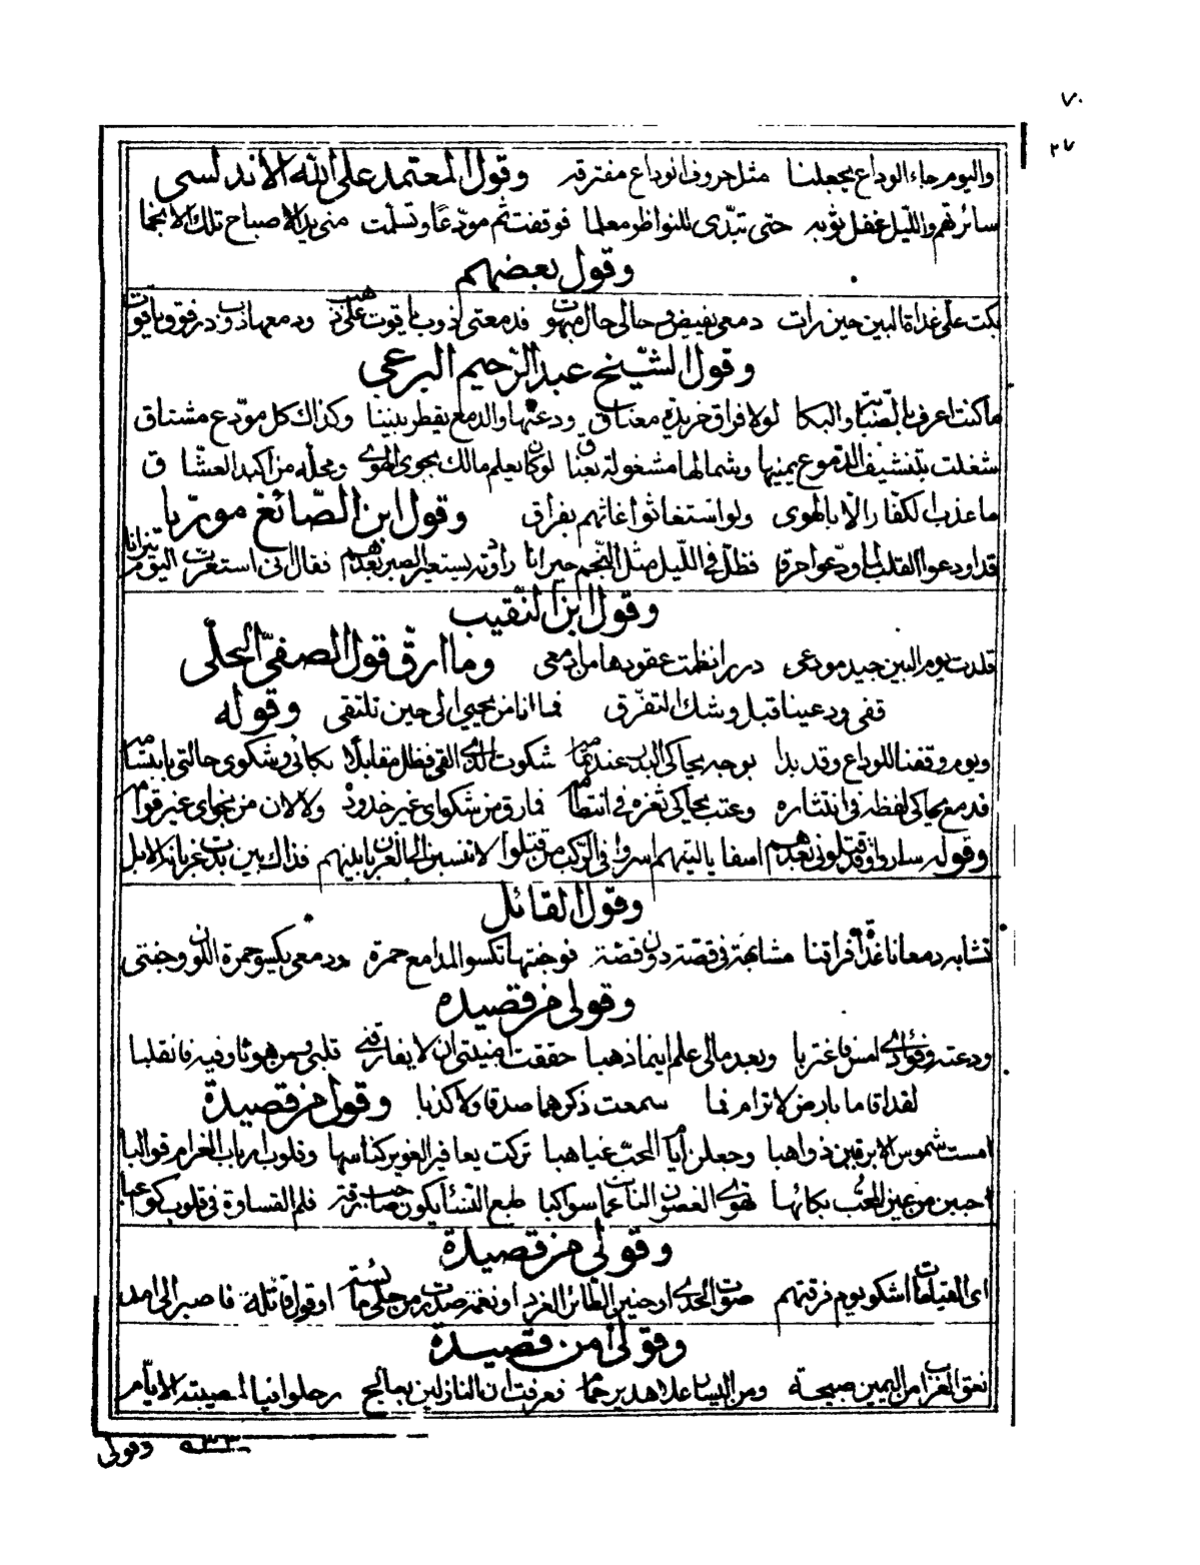 ٧٠
٢٧
واليوم جاء الوداع يجعلنا مثل حروف الوداع مفترقه وقول المعتمد على الله الاندلسى
سائرتهم والليل غفل ثوبه حتى تبدّى للنواظر معلما فوقفت ثم مودّعاً وتسلّمت منى يد الاصباح تلك الانجما
وقول بعضهم
بكت علىّ غداة البين حين رات دمعى يفيض وحالى حال مبهوت فدمعتى ذوب ياقوت على ذهب ودمعها ذوب در فوق ياقوت
وقول الشيخ عبد الرّحيم البرعى
ما كنت اعرف بالصّبا والبكا لولا فراق خريدة معناق ودعتها والدمع يقطر بيننا وكذاك كل مودّع مشتاق
شغلت بتنشيف الدّموع يمينها وشمالها مشغولة بعناق لو كان يعلم مالك بجوى الهوى ومحلّه من اكبد العشّاق
ما عذب الكفّار الا بالهوى ولو استغاثوا غاثهم بفراق وقول ابن الصّائغ مورّيا
قد اودعوا القلب لما ودّعوا حرقا فظلّ فى اللّيل مثل النّجم حيرانا راودته يستعير الصبر بعدهم فقال انى استعرت اليوم نيرانا
وقول ابن النّقيب
قلدت يوم البين جيد مودعى دررا نظمت عقودها من ادمعى وما ارقّ قول الصفىّ الحلّى
قفى ودعينا قبل وشك التفرّق فما انا من يحيى الى حين نلتقى وقوله
ويوم وقفنا للوداع وقد بدا بوجه يحاكى البدر عند تمامه شكوت الذى القى فظل مقابلا بكائى وشكوى حالتى بابتسامه
فدمع يحاكى لفظه فى انتثاره وعتب يحاكى ثغره فى انتظامه فما رق من شكواى غير خدوده ولا لان من نجواى غير قوامه
وقوله ساروا وقد قتلونى بعدهم اسفا يا ليتهم اسروا فى الركب من قتلوا لا تنسبن الى الغربان بينهم فذاك بين بدت غربانه الابل
وقول القائل
تشابه دمعانا غداة فراقنا مشابهة فى قصّة دون قصّة فوجنتها تكسو المدامع حمرة ودمعى يكسو حمرة اللون وجنتى
وقولى من قصيده
ودعته وفؤادى امس فاغتربا وبعد مالى علم اينما ذهبا حققت امنيتى ان لا يفارقنى قلبى ومن هو ثاو فيه فانقلبا
لقد اقاما بارض لا ترام فما سمعت ذكرهما صدقا ولا كذبا وقولى من قصيدة
امست شموس الابرقين ذواهبا وجعلن ايام المحبّ غياهبا تركت يعافير الغوير كناسها وقلوب ارباب الغرام قوالبا
اجبين من عين المحب بكائها تهوى الغصون النابتات سواكبا طبع النساء يكون صاحب رقة فلم القساوة فى قلوب كواعبا
وقولى من قصيدة
اى القيامات اشكو يوم فرقتهم صوت الحدى او حنين الطائر الغرد او نغمة صدرت من حلى مائسة او قول قاتلة فاصبر الى امد
وقولى من قصيدة
نعق الغراب من اليمين صبيحة ومن اليسار علا هدير حمام فعرفت ان النازلين بعالج رحلوا فيا لمصيبة الايام
وقولى